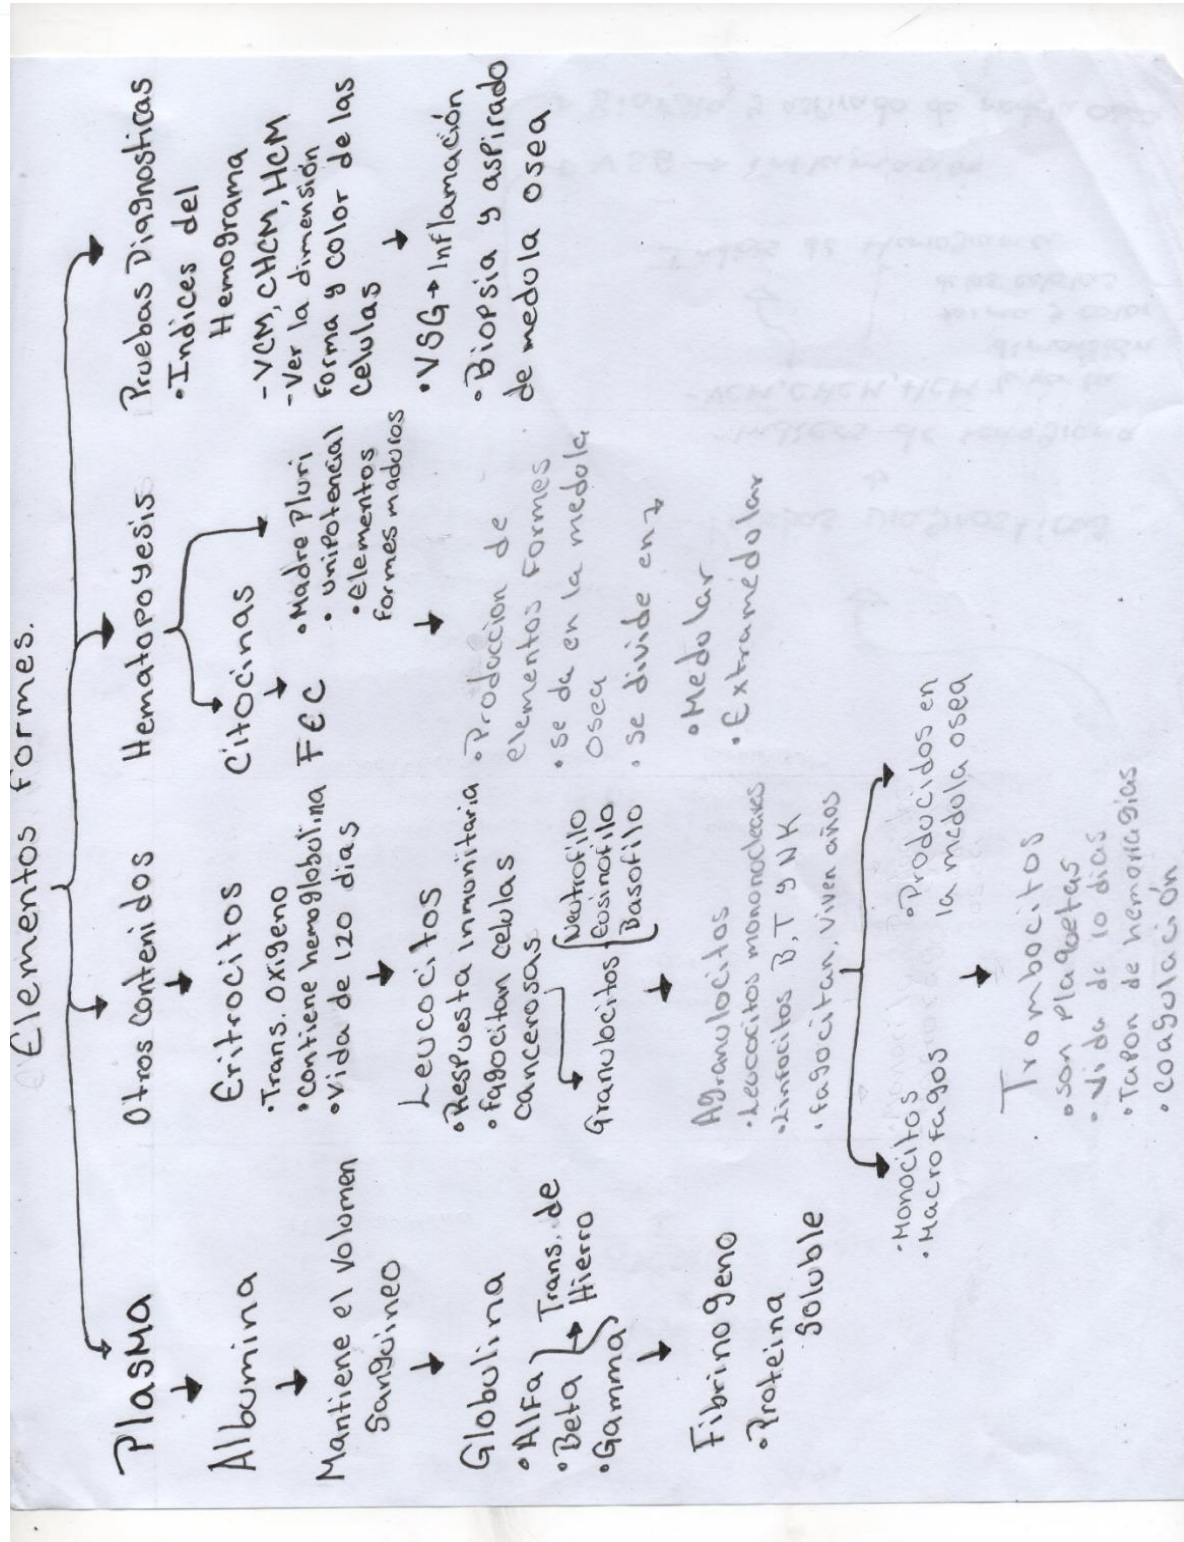 Elementos formes.
Plasma
Albumina
Mantiene el volumen
Sanguineo
Globulina
• Alfa
• Beta
• Gamma
Trans. de
Hierro
Fibrinogeno
• Proteina
soluble
Otros contenidos
Eritrocitos
• Trans. Oxigeno
• contiene hemoglobulina
• Vida de 120 dias
Leucocitos
• Respuesta inmunitaria
• fagocitan celulas
cancerosas
Granulocitos
Neutrofilo
Eosinofilo
Basofilo
Agranulocitos
• Leucocitos mononocleares
• Linfocitos B, T y NK
• fagocitan, viven años
• Monocitos
• Macrofagos
• Producidos en
la medula osea
Trombocitos
• son Plaquetas
• Vida de 10 dias
• Tapon de hemorragias
• coagulación
Hematopoyesis
Citocinas
FEC
• Madre Pluri
• unipotencial
• Elementos
formes maduros
• Producción de
elementos formes
• se da en la medula
osea
• se divide en →
• Medolar
• Extramedolar
Pruebas Diagnosticas
• Indices del
Hemograma
- VCM, CHCM, HCM
- Ver la dimensión
forma y color de las
celulas
• VSG → Inflamación
• Biopsia y aspirado
de medula osea